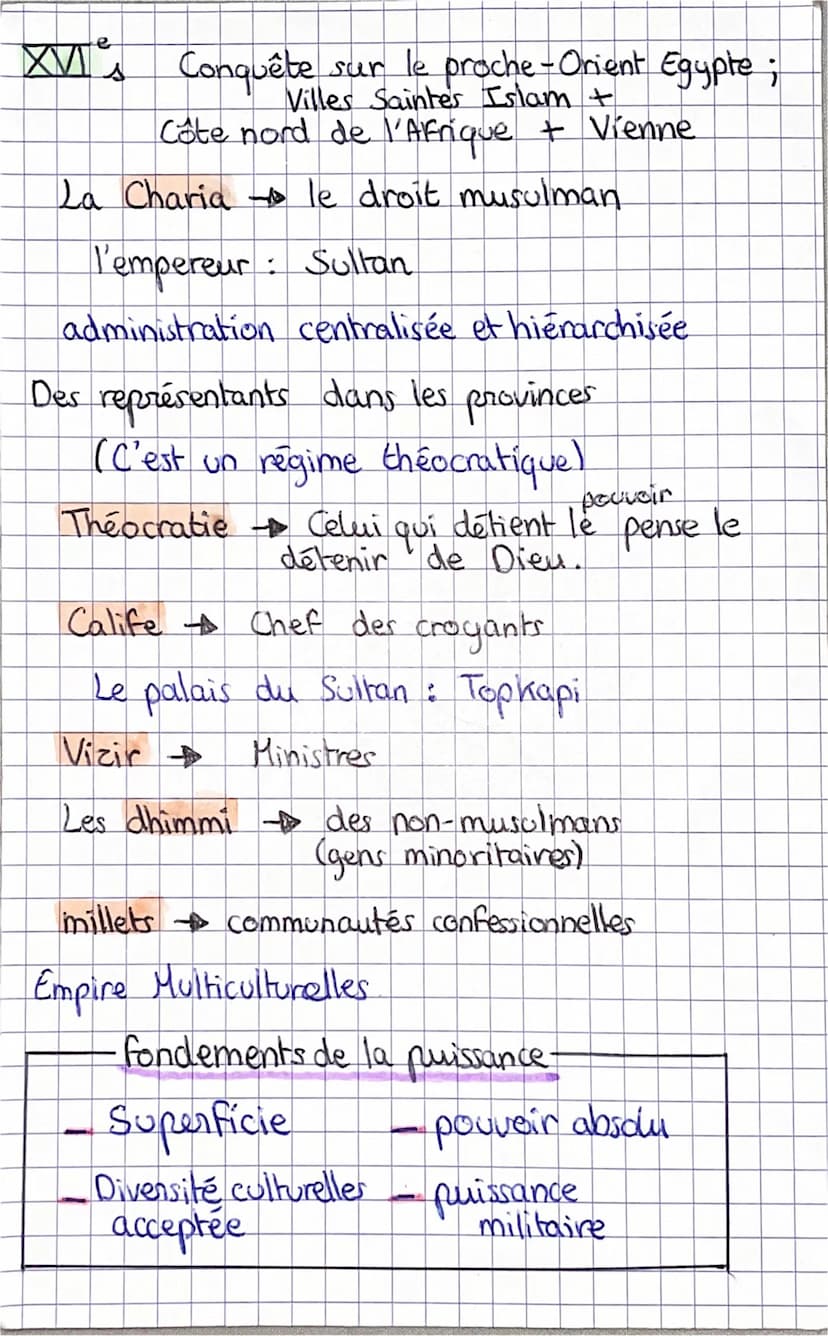 XVIe s Conquête sur le proche-Orient Egypte ;
Villes Saintes Islam +
Côte nord de l'Afrique + Vienne
La Charia → le droit musulman
l'empereur : Sultan
administration centralisée et hiérarchisée
Des représentants dans les provinces
(C'est un régime théocratique)
Théocratie → Celui qui détient le pouvoir pense le
détenir de Dieu.
Calife → Chef des croyants
Le palais du Sultan : Topkapi
Vizir → Ministres
Les dhimmi → des non-musulmans
(gens minoritaires)
millets → communautés confessionnelles
Empire Multiculturelles
fondements de la puissance
- Superficie - pouvoir absolu
- Diversité culturelles - puissance
acceptée militaire